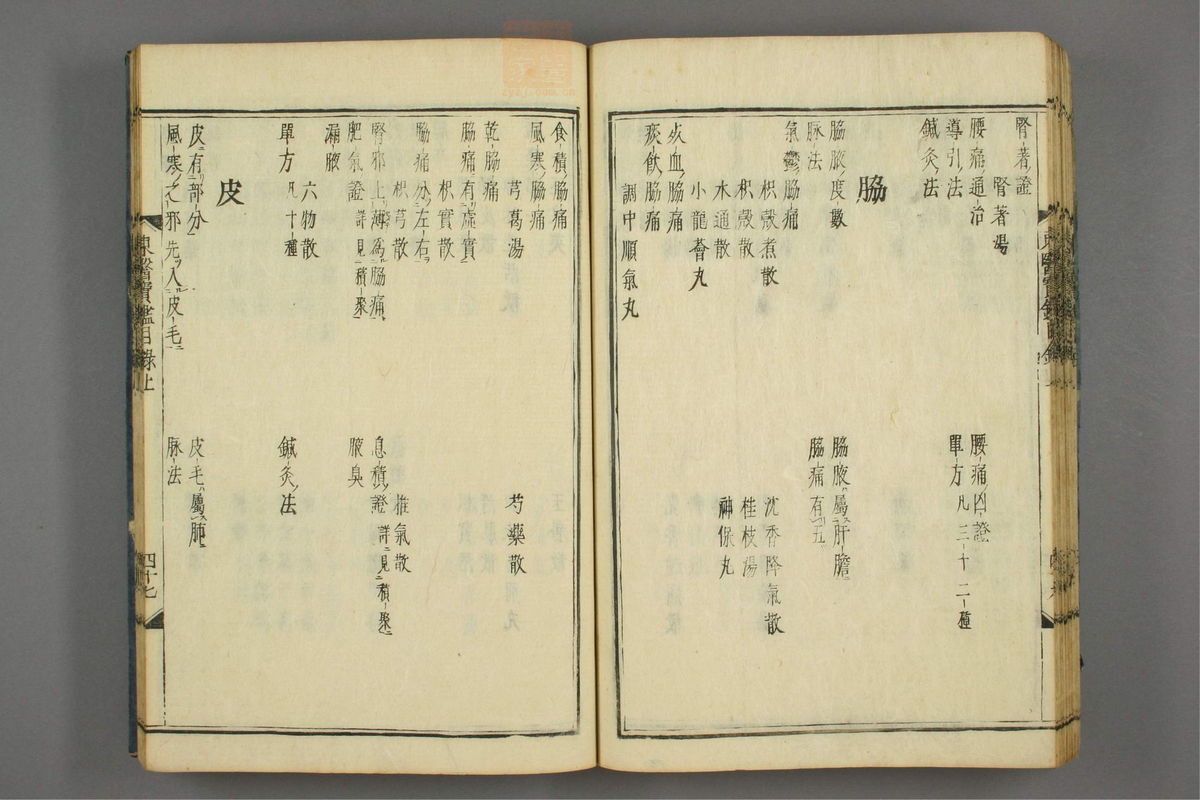 腎著證
腎著湯
腰痛通治 腰痛凶證
導引法 單方凡三十二種
鍼灸法
脇
脇腋度數 脇腋屬肝膽
脉法 脇痛有五
氣鬱脇痛
枳殼煮散 沈香降氣散
枳殼散 桂枝湯
木通散 神保丸
小龍薈丸
死血脇痛
痰飮脇痛
調中順氣丸
食積脇痛
風寒脇痛
芎葛湯 芍藥散
乾脇痛
脇痛有虛實
枳實散
脇痛分左右
枳芎散 推氣散
腎邪上薄爲脇痛 息積證詳見積聚
肥氣證詳見積聚 腋臭
漏腋
六物散
單方凡十種 鍼灸法
皮
皮有部分 皮毛屬肺
風寒之邪先入皮毛 脉法
東醫寶鑑目錄上 四十七